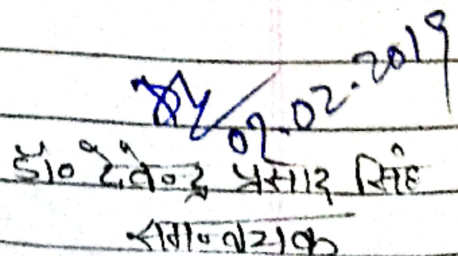 02.02.2019
डॉ० देवेन्द्र प्रसाद सिंह
समन्वयक